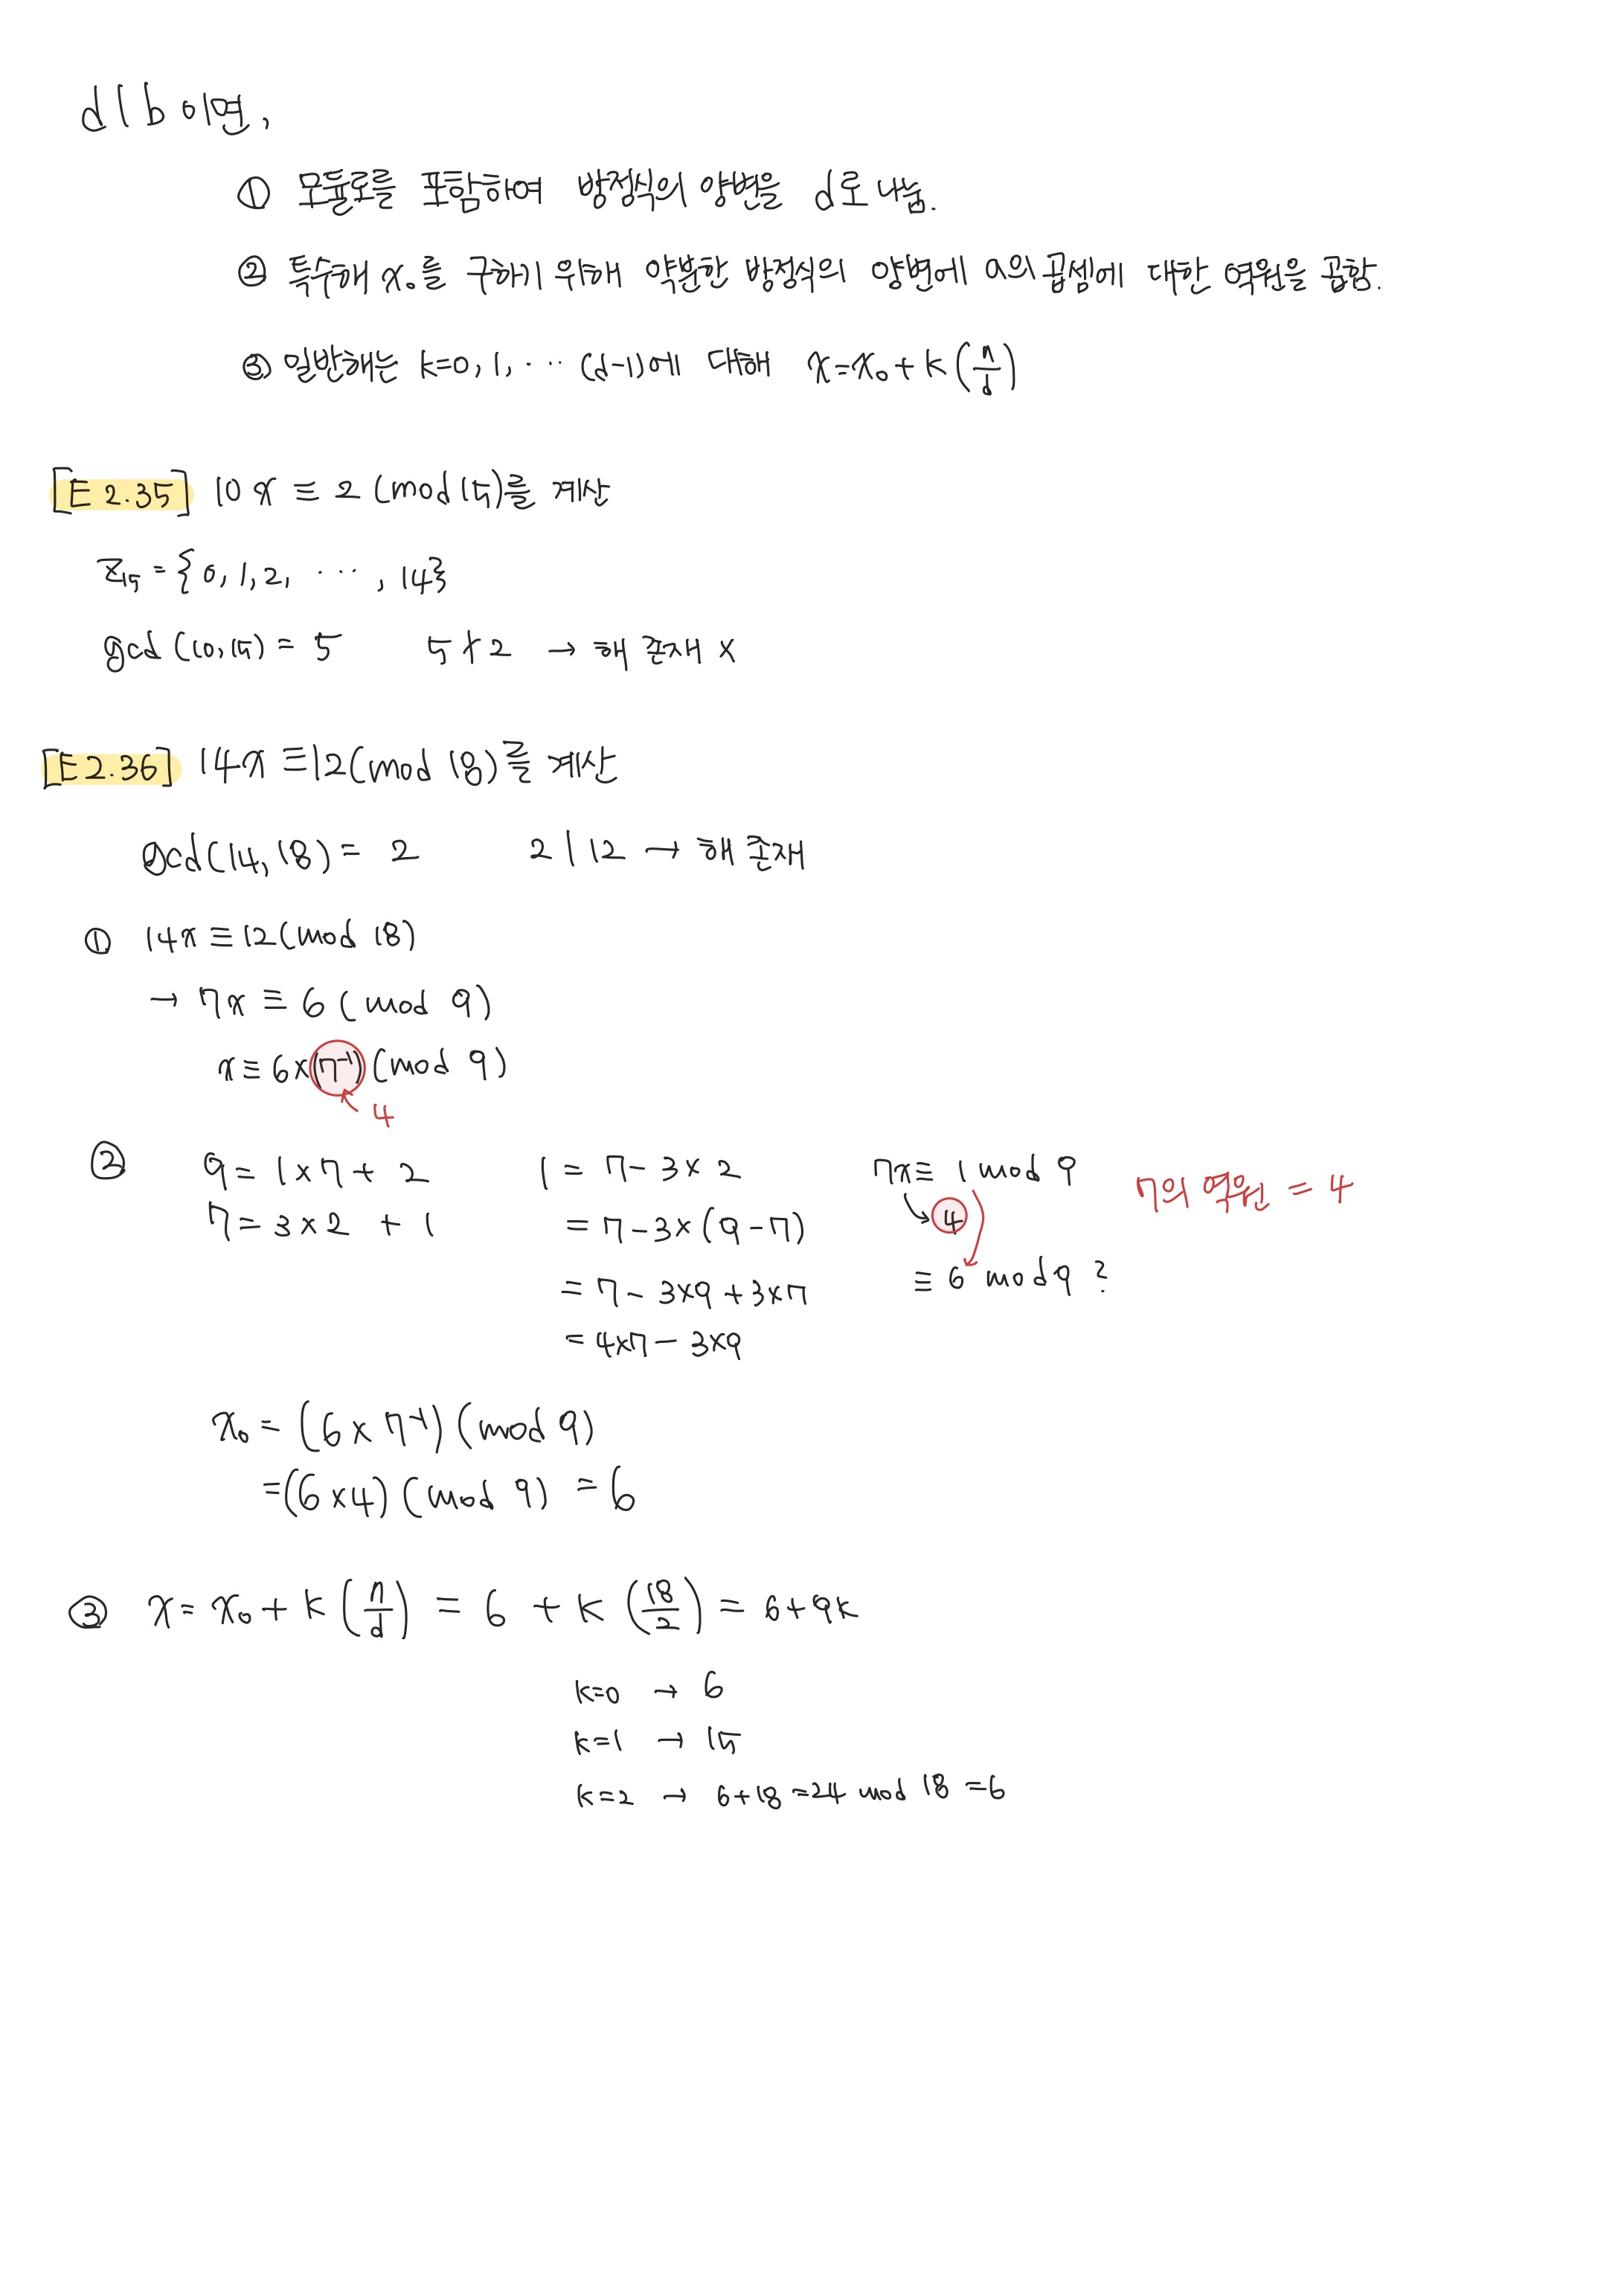 d|b 이면,
① 모듈로를 포함하여 방정식의 양변을 d로 나눔.
② 특수해 x₀를 구하기 위해 약분한 방정식의 양변에 a의 곱셈에 대한 역원을 곱함.
③ 일반해는 k=0, 1, ··· (d-1)에 대해 x=x₀+k(n/d)
[E 2.35] 10x ≡ 2 (mod 15)를 계산
Z₁₅ = {0, 1, 2, ···, 14}
gcd (10, 15) = 5 5∤2 → 해 존재 x
[E 2.36] 14x ≡ 12 (mod 18)를 계산
gcd(14, 18) = 2 2|12 → 해 존재
① 14x ≡ 12 (mod 18)
→ 7x ≡ 6 (mod 9)
x ≡ 6×(7⁻¹) (mod 9)
4
② 9 = 1×7+2 1 = 7-3×2 7x ≡ 1 mod 9 7의 역원 = 4
7 = 3×2+1 = 7-3×(9-7) 4
= 7-3×9+3×7 ≡ 6 mod 9 ?
= 4×7-3×9
x₀ = (6×7⁻¹) (mod 9)
= (6×4) (mod 9) = 6
③ x = x₀+k(n/d) = 6+k(18/2) = 6+9k
k=0 → 6
k=1 → 15
k=2 → 6+18=24 mod 18 =6